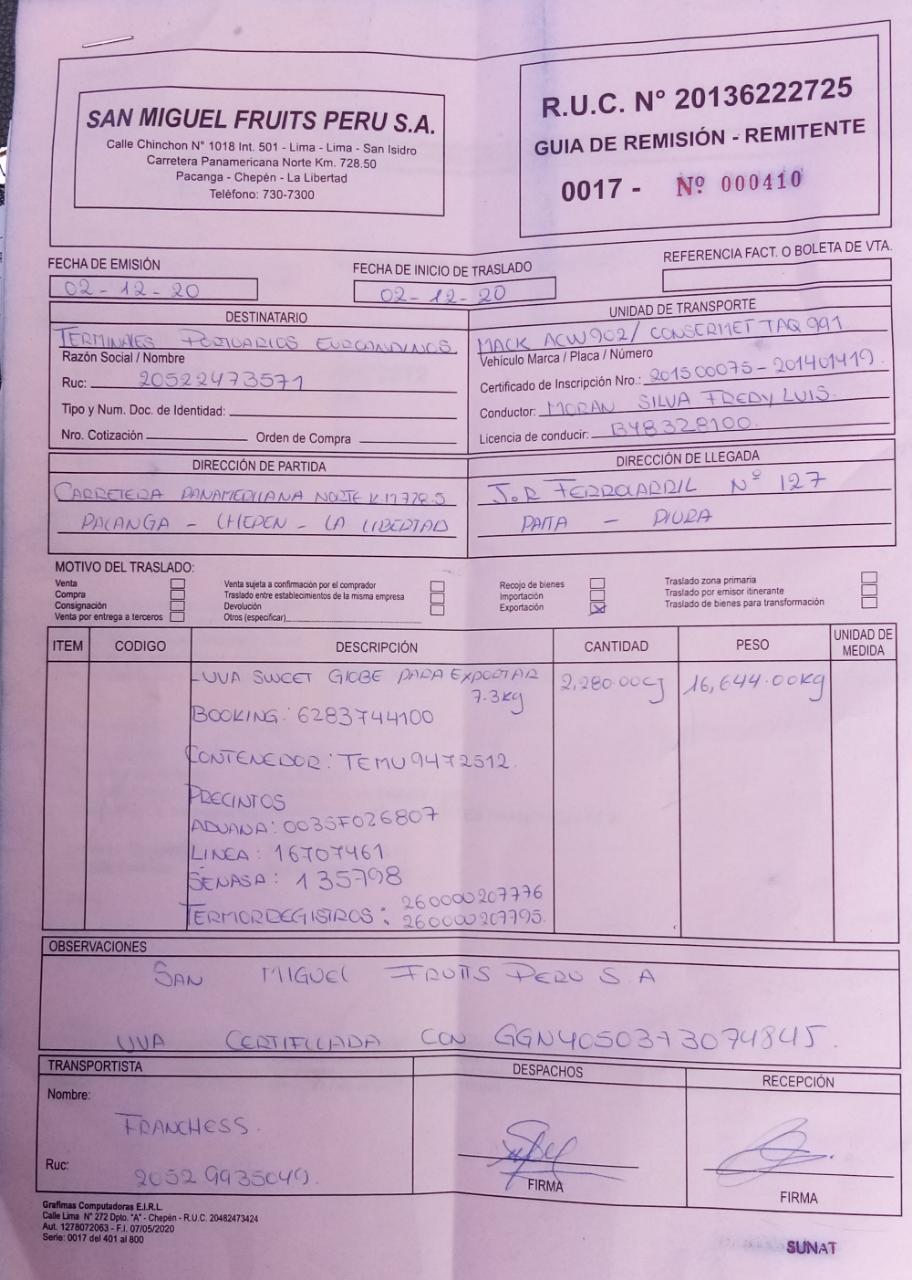 SAN MIGUEL FRUITS PERU S.A.
Calle Chinchon N° 1018 Int. 501 - Lima - Lima - San Isidro
Carretera Panamericana Norte Km. 728.50
Pacanga - Chepén - La Libertad
Teléfono: 730-7300
R.U.C. N° 20136222725
GUIA DE REMISIÓN - REMITENTE
0017 - Nº 000410
FECHA DE EMISIÓN
02-12-20
FECHA DE INICIO DE TRASLADO
02-12-20
REFERENCIA FACT. O BOLETA DE VTA.
DESTINATARIO
TERMINALES PORTUARIOS EUROANDINOS
Razón Social / Nombre
Ruc: 20522473571
Tipo y Num. Doc. de Identidad:
Nro. Cotización Orden de Compra
UNIDAD DE TRANSPORTE
MACK ACW902/ CONSERMET TAQ 991
Vehículo Marca / Placa / Número
Certificado de Inscripción Nro.: 201500075-201401419.
Conductor: MORAN SILVA FREDY LUIS.
Licencia de conducir: B48328100.
DIRECCIÓN DE PARTIDA
CARRETERA PANAMERICANA NORTE KM728.5
PACANGA - CHEPEN - LA LIBERTAD
DIRECCIÓN DE LLEGADA
J.R FERROCARRIL Nº 127
PAITA - PIURA
MOTIVO DEL TRASLADO:
Venta
Compra
Consignación
Venta por entrega a terceros
Venta sujeta a confirmación por el comprador
Traslado entre establecimientos de la misma empresa
Devolución
Otros (especificar)
Recojo de bienes
Importación
Exportación X
Traslado zona primaria
Traslado por emisor itinerante
Traslado de bienes para transformación
ITEM CODIGO DESCRIPCIÓN CANTIDAD PESO UNIDAD DE MEDIDA
-UVA SWEET GLOBE PARA EXPORTAR 2,280.00CJ 16,644.00Kg
7.3kg
BOOKING: 6283744100
CONTENEDOR: TEMU9472512.
PRECINTOS
ADUANA: 003SF026807
LINEA: 16707461
SENASA: 135798
TERMOREGISTROS: 260000207776
260000207795.
OBSERVACIONES
SAN MIGUEL FRUITS PERU S.A
UVA CERTIFICADA CON GGN4050373074845.
TRANSPORTISTA
Nombre:
FRANCHESS.
Ruc:
20529935049.
DESPACHOS
FIRMA
RECEPCIÓN
FIRMA
Grafimas Computadoras E.I.R.L.
Calle Lima N° 272 Dpto. "A" - Chepén - R.U.C. 20482473424
Aut. 1278072063 - F.I. 07/05/2020
Serie: 0017 del 401 al 800
SUNAT